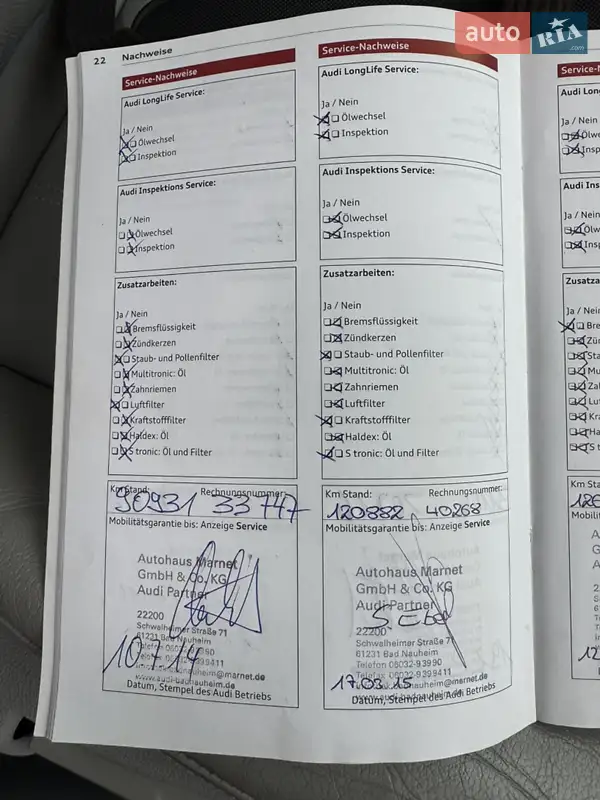 auto RIA
.com
22 Nachweise
Service-Nachweise
Audi LongLife Service:
Ja / Nein
Ölwechsel
Inspektion
Audi Inspektions Service:
Ja / Nein
Ölwechsel
Inspektion
Zusatzarbeiten:
Ja / Nein
Bremsflüssigkeit
Zündkerzen
Staub- und Pollenfilter
Multitronic: Öl
Zahnriemen
Luftfilter
Kraftstofffilter
Haldex: Öl
S tronic: Öl und Filter
Km Stand: Rechnungsnummer:
90931 33747
Mobilitätsgarantie bis: Anzeige Service
Autohaus Marnet
GmbH & Co. KG
Audi Partner
22200
Schwalheimer Straße 71
61231 Bad Nauheim
Telefon 06032-93990
Telefax 06032-9399411
www.audi-badnauheim.de
10.7.14
Datum, Stempel des Audi Betriebs
Service-Nachweise
Audi LongLife Service:
Ja / Nein
Ölwechsel
Inspektion
Audi Inspektions Service:
Ja / Nein
Ölwechsel
Inspektion
Zusatzarbeiten:
Ja / Nein
Bremsflüssigkeit
Zündkerzen
Staub- und Pollenfilter
Multitronic: Öl
Zahnriemen
Luftfilter
Kraftstofffilter
Haldex: Öl
S tronic: Öl und Filter
Km Stand: Rechnungsnummer:
120882 40268
Mobilitätsgarantie bis: Anzeige Service
Autohaus Marnet
GmbH & Co. KG
Audi Partner
22200
Schwalheimer Straße 71
61231 Bad Nauheim
Telefon 06032-93990
Telefax 06032-9399411
17.03.15
Datum, Stempel des Audi Betriebs